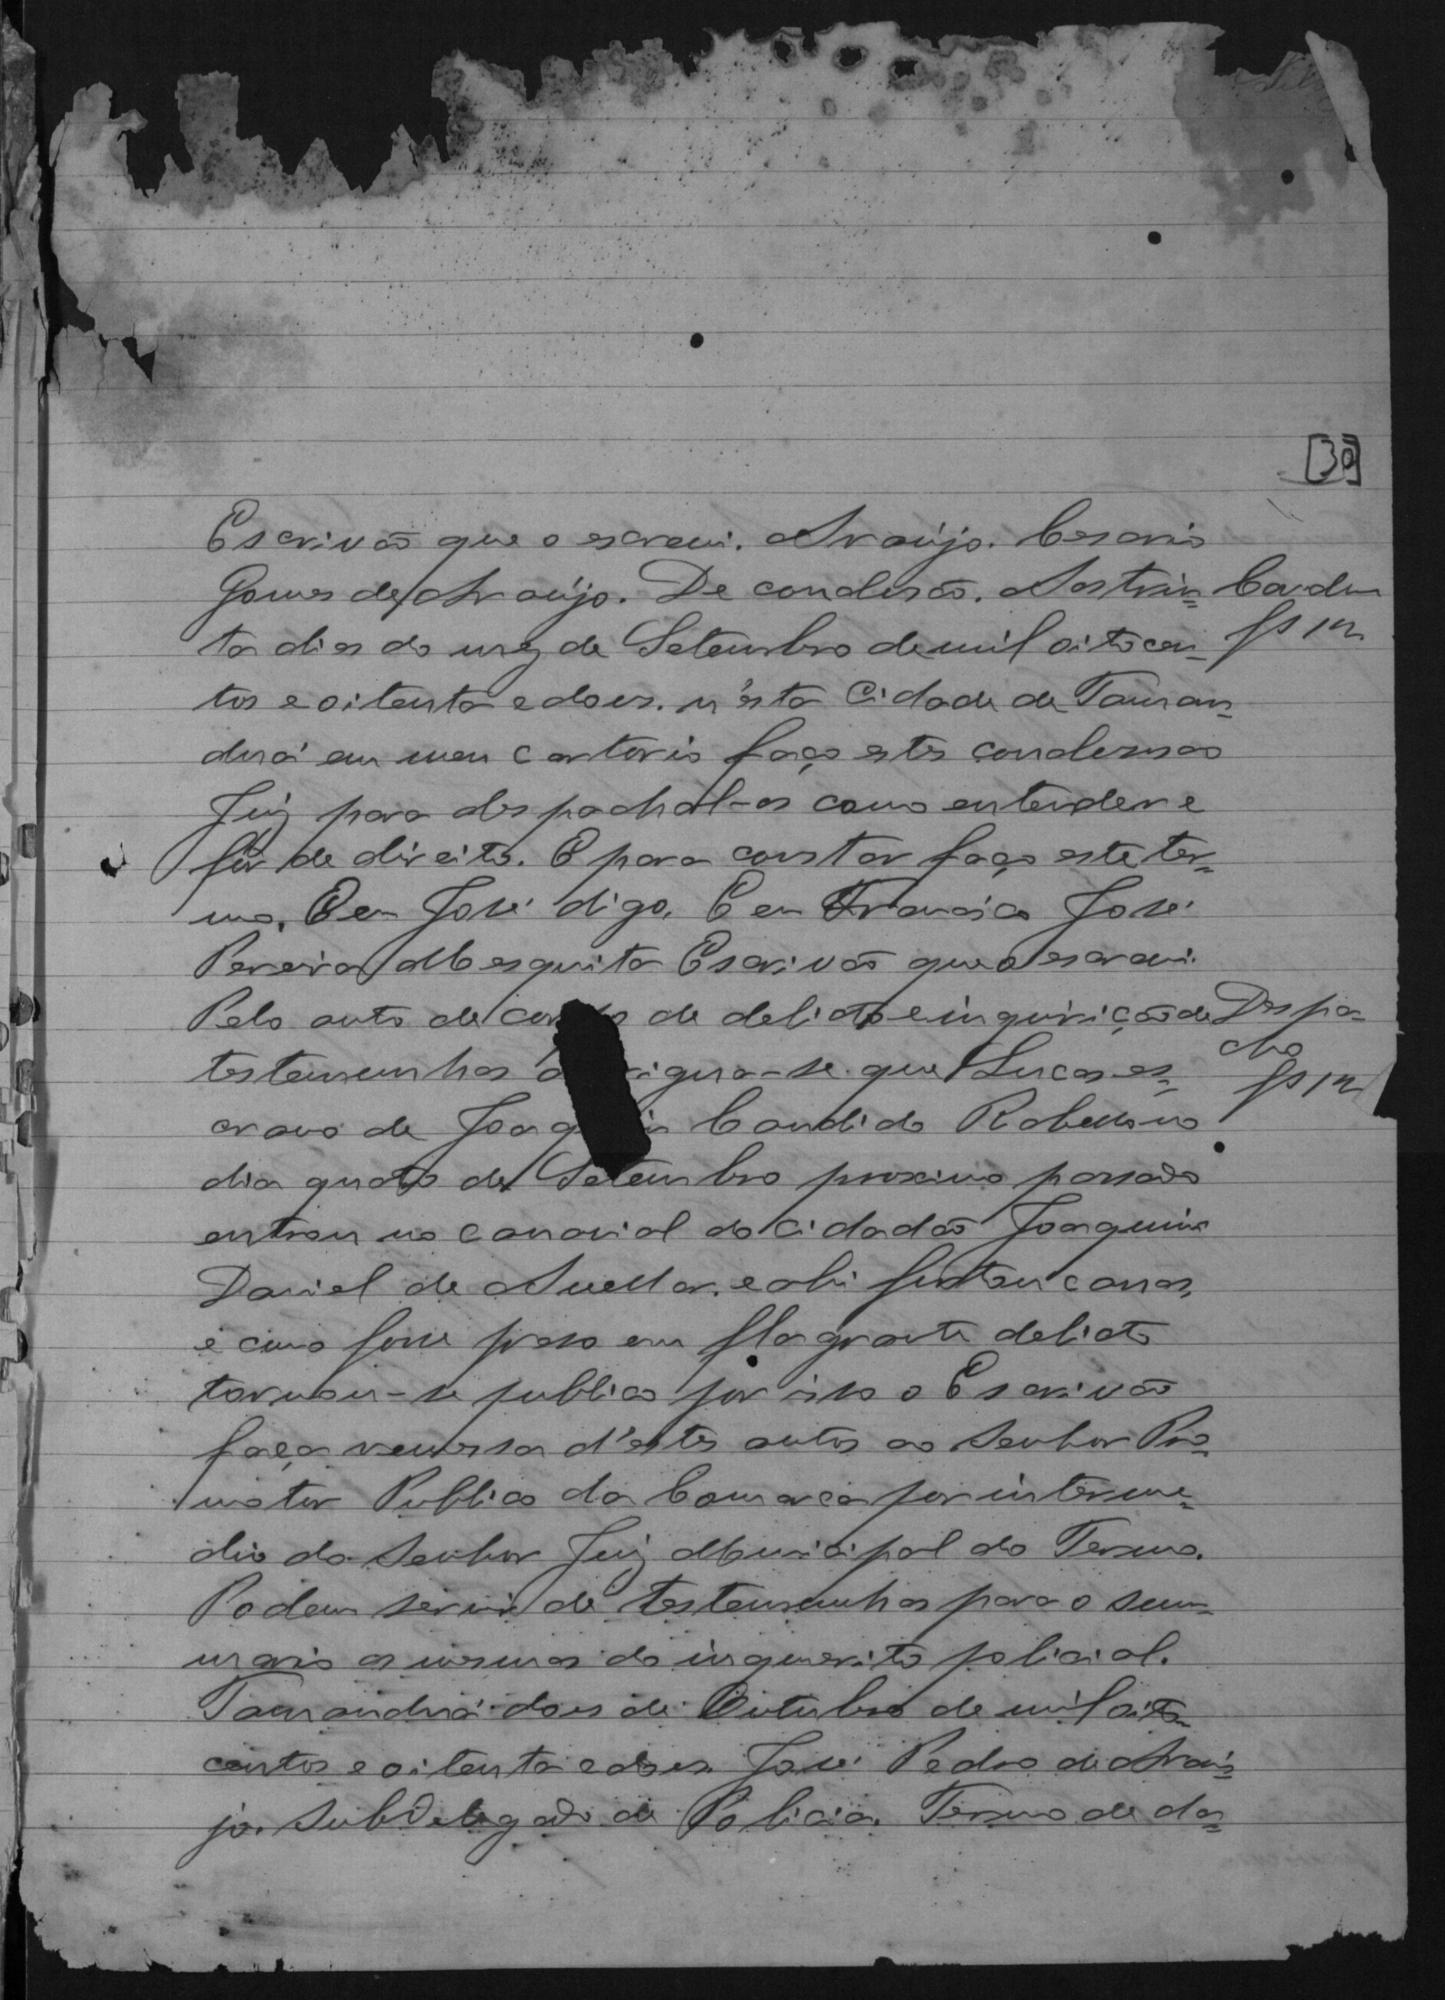 [30]
Escrivão que o escrevi. Araújo. Cesario
Gomes de Araújo. De conclusão. Aos trin-
ta dias do mez de Setembro de mil oitocen-
tos e oitenta e dous. n'esta Cidade de Taman-
duá em meu cartorio faço estes conclusos ao
Juiz para despachal-os como entender e
fôr de direito. E para constar faço este ter-
mo. E eu José digo, E eu Francisco José
Pereira Mesquita Escrivão que o escrevi.
Pelo auto de corpo de delicto e inquirição de
testemunhas a rigua-se que Lucas es-
cravo de Joaquim Candido Rabello no
dia quatro de Setembro proximo passado
entrou no canavial do cidadão Joaquim
Daniel de Avellar. e ahi furtou cannas,
e como fosse preso em flagrante delicto
tornou-se publico por isso o Escrivão
faça remessa d'estes autos ao Senhor Pro-
motor Publico da Comarca por interme-
dio do Senhor Juiz Municipal do Termo.
Podem servir de testemunhas para o sum-
mario as mesmas do inquerito policial.
Tamanduá dous de Outubro de mil oito-
centos e oitenta e dous. José Pedro de Araú-
jo. Subdelegado de Policia. Termo de da-
fs 12
Despa-
cho
fs 12